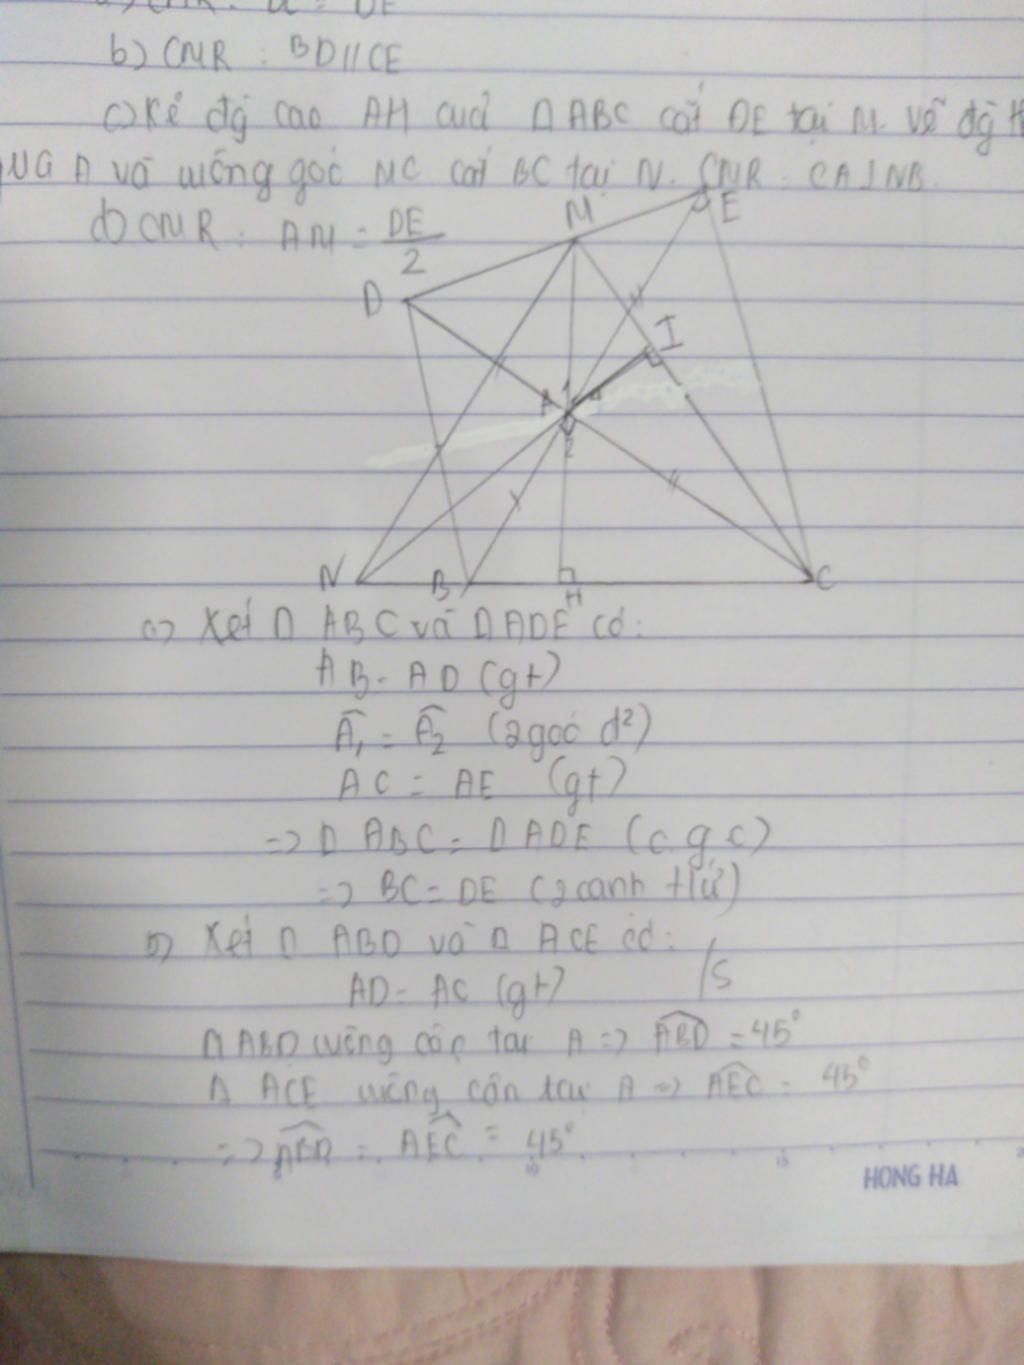 b) CMR : BD//CE
c) Kẻ đg cao AH cuả Δ ABC cắt DE tại M. Vẽ đg
qua A và vuông góc MC cắt BC tại N. CMR : CA⊥NB.
d) CMR : AM = DE/2
M
E
D
I
A
1
2
N
B
H
C
a) Xét Δ ABC và Δ ADE có:
AB = AD (gt)
Â₁ = Â₂ (2 góc đ²)
AC = AE (gt)
=> Δ ABC = Δ ADE (c.g.c)
=> BC = DE (2 cạnh tứ)
b) Xét Δ ABD và Δ ACE có:
AD = AC (gt) /S
Δ ABD vuông cân tại A => ABD = 45°
Δ ACE vuông cân tại A => AEC = 45°
=> ABD = AEC = 45°
10
15
HONG HA